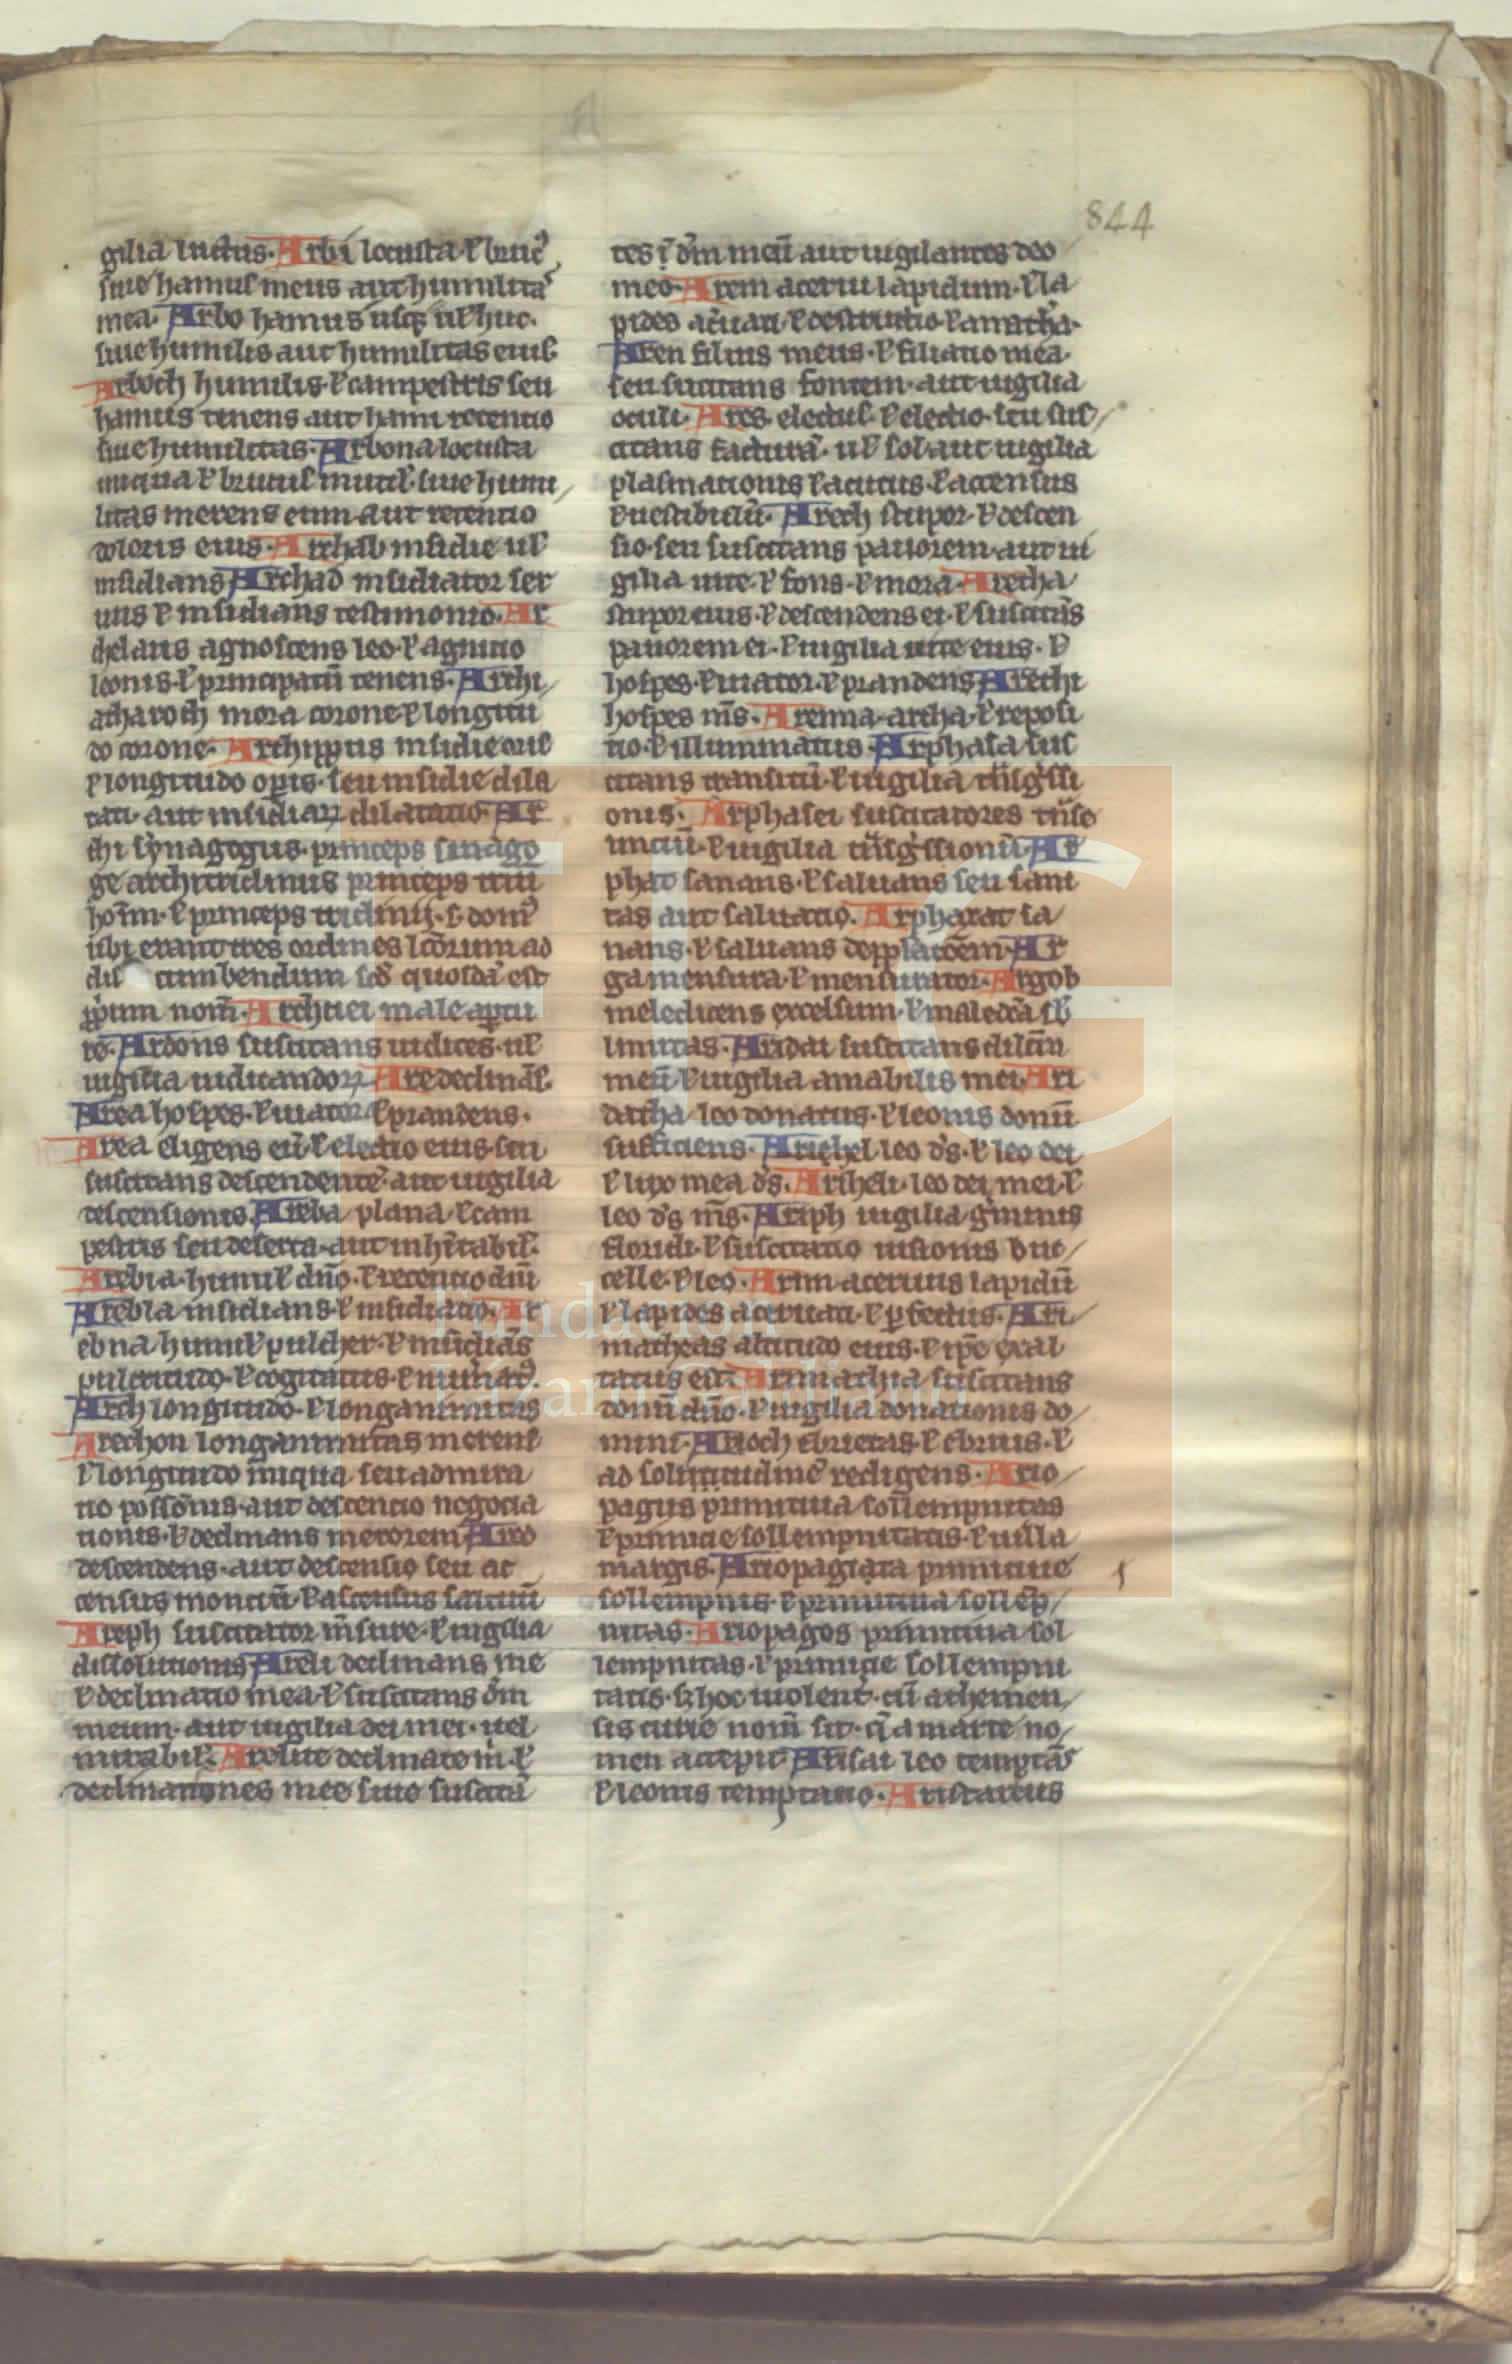 844
gilia luctus. Arbi locusta. ł bruc᾽
siue hamus meus aut humilita᷒
mea. Arbo hamus usq; ul' huc.
siue humilis aut humilitas eius.
Arboch humilis. ł campestris seu
hamus tenens aut hami retentio
siue humilitas. Arbona locusta
iniqua ł brucus inutil'. siue humi
litas merens eum aut retentio
doloris eius. Archab insidie ul'
insidians Archad insidiator ser
uus ł insidians testimonio. Ar
chelaus agnoscens leo. ł agnitio
leonis. ł principatū tenens. Archi
atharoth mora corone ł longitu
do corone. Archippus insidie oris
ł longitudo op̄is. seu insidie dila
tati. aut insidiaꝝ dilatatio. Ar
chi synagogus. princeps sinago
ge architriclinus princeps triū
hoīm. ł princeps triclinii. s. dom᾽
ubi erant tres ordines lc̄orum ad
dis cumbendum sc̄d quosdā est
ꝓprium nom̄. Archiuei male aptū
te. Ardons suscitans iudices. ul'
uigilia iudicandoꝝ Are declinās.
Area hospes. ł uiator ł prandens.
Area eligens eū. ł electio eius. seu
suscitans descendentē. aut uigilia
descensionis. Areba plana. ł cam
pestris seu deserta. aut inhītabil'.
Arebia. humil' dn̄o. ł retentio dn̄i
Arebla insidians. ł insidiatio. Ar
ebna humil' pulcher. ł insidiās
pulcritudo. ł cogitatus. ł
Arech longitudo. ł longanimitas
Arechon longanimitas merens
ł longitudo iniqua seu admira
tio possōnis. aut descentio negocia
tionis. ł declinans merorem Ared
descendens. aut descensio seu ac
census montiū. ł ascensus
Areph suscitator m̄sure. ł uigilia
dissolutionis Areli declinans me
ł declinatio mea. ł suscitans dm̄
meum. aut uigilia dei mei. uel
mirabil'. Arelite declinate m̄. ł
declinationes mee siue suscitā
tes ī dm̄ meū aut uigilantes deo
meo. Arem aceruū lapidum. ł la
pides ac̄uati. ł destitutio ł anathā.
Aren filius meus. ł filiatio mea.
seu suscitans fontem. aut uigilia
oculi. Ares electus. ł electio. seu sus
citans facturā. ul' sol. aut uigilia
plasmationis ł acutus. ł accensus
ł uestibulū. Areth stupor. ł descen
sio. seu suscitans pauorem. aut ui
gilia uite. ł fons. ł mora. Aretha
stupor eius. ł descendens ei. ł suscitās
pauorem ei. ł uigilia uite eius. ł
hospes. ł uiator. ł prandens Arethi
hospes m̄s. Arenna. archa. ł reposi
tio. ł illuminatus. Arphasa sus
citans transitū. ł uigilia tn̄sḡssi
onis. Arphasei suscitatores tn̄se
untiū. ł uigilia tn̄sḡssionū. Ar
phat sanans. ł saluans seu sani
tas aut saluatio. Arphaxat sa
nans. ł saluans dep̄p̄latōem. Ar
ga mensura. ł mensurator. Argob
meledicens excelsum. ł maledcā sb̄
limitas. Aridai suscitans dilc̄m
meū ł uigilia amabilis mei. Ari
datha leo donatus. ł leonis donū
sufficiens. Ariehel leo ds̄. ł leo dei
ł lux mea ds̄. Ariheli. leo dei mei. ł
leo ds̄ m̄s. Ariph uigilia ḡminis
floridi. ł suscitatio uisionis buc
celle. ł leo. Arim aceruus lapidū
ł lapides aceruati. ł p̄fectus. Ari
matheas altitudo eius. ł ip̄e exal
tatus est. Arimathia suscitans
donū dn̄o. ł uigilia donationis do
mini. Arioch ebrietas. ł ebrius. ł
ad solitudinē redigens. Ario
pagus primitiua sollempnitas
ł primitie sollempnitatis. ł uilla
martis. Ariopagita primitiue
sollempnis. ł primitiua sollēp
nitas. Ariopagos primitiua sol
lempnitas. ł primitie sollempni
tatis. ꝫ hoc uiolent̄. cū athenien
sis curie nom̄ sit. q̄ a marte no
men accepit Arisai leo temptās
ł leonis temptatio. Aristarcus